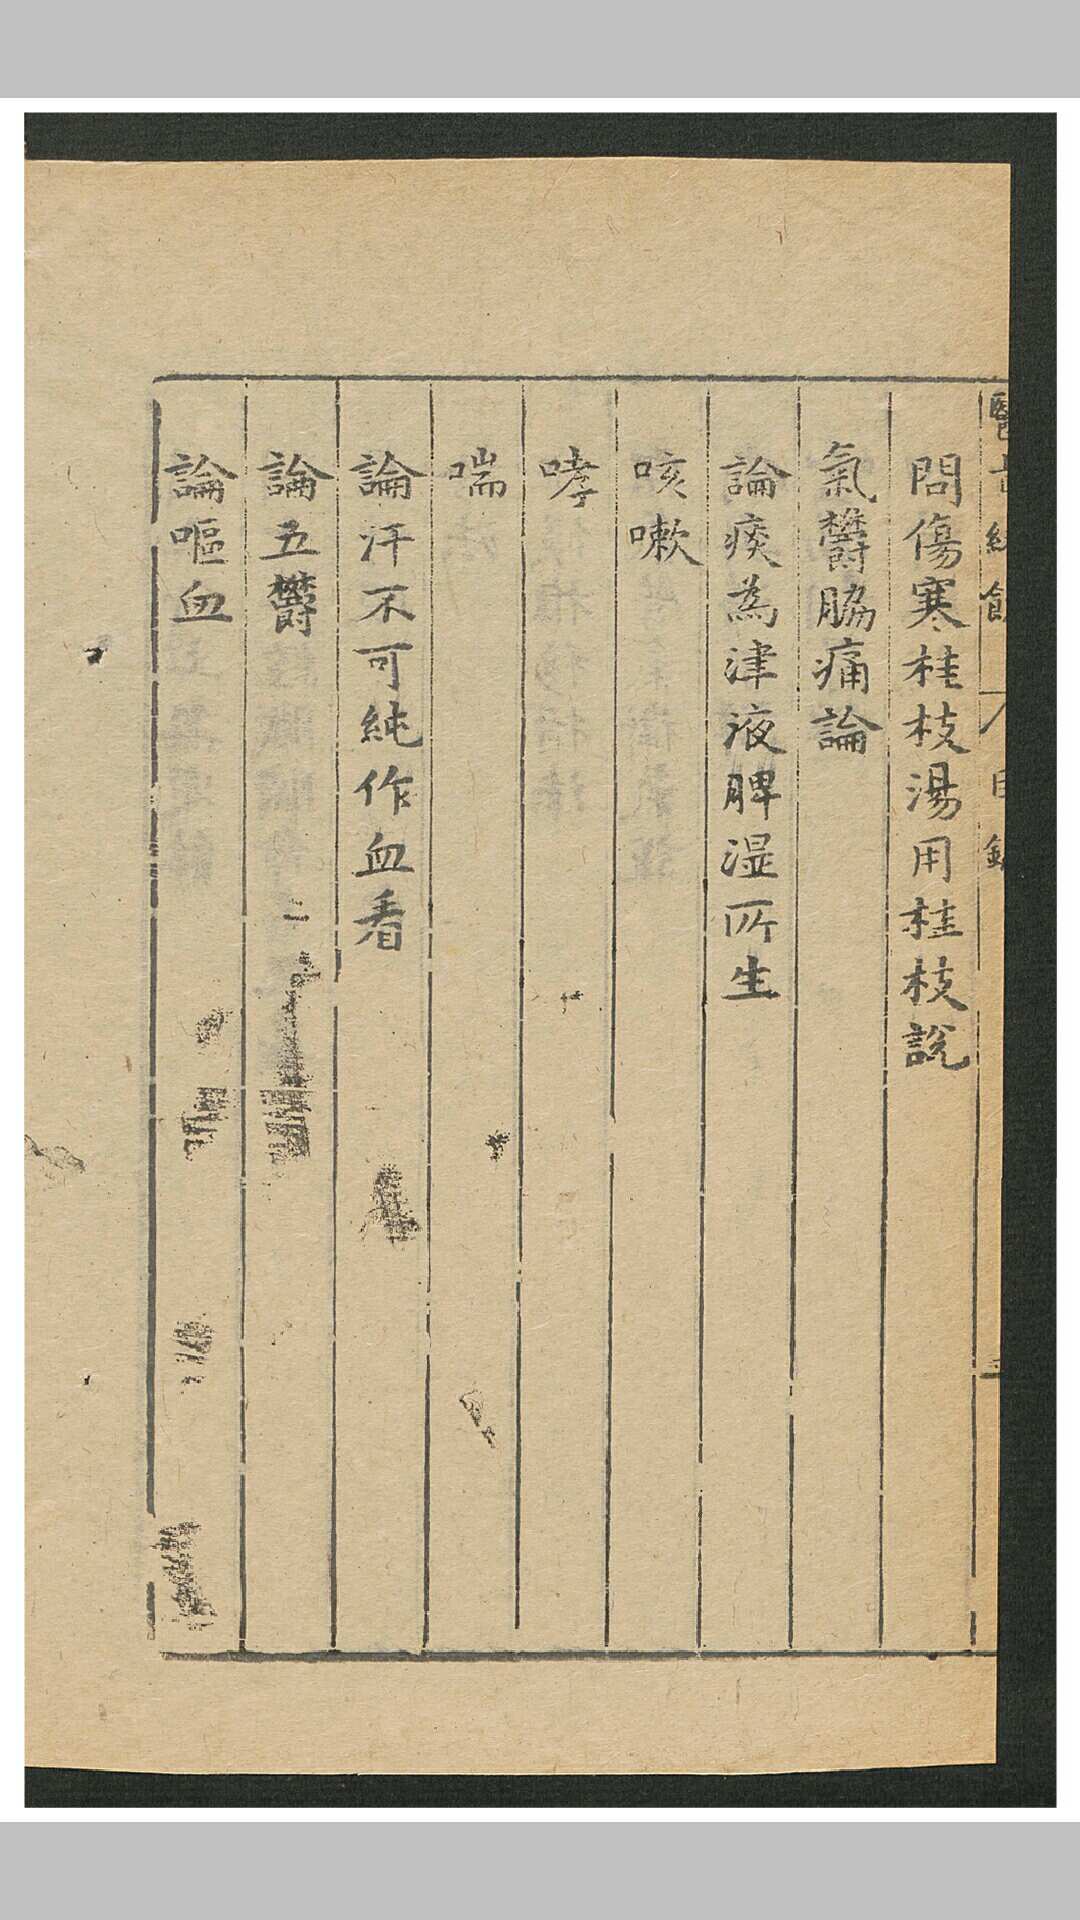 醫
目錄
問傷寒桂枝湯用桂枝說
氣欝脇痛論
論痰為津液脾湿所生
咳嗽
哮
喘
論汗不可純作血看
論五欝
論嘔血